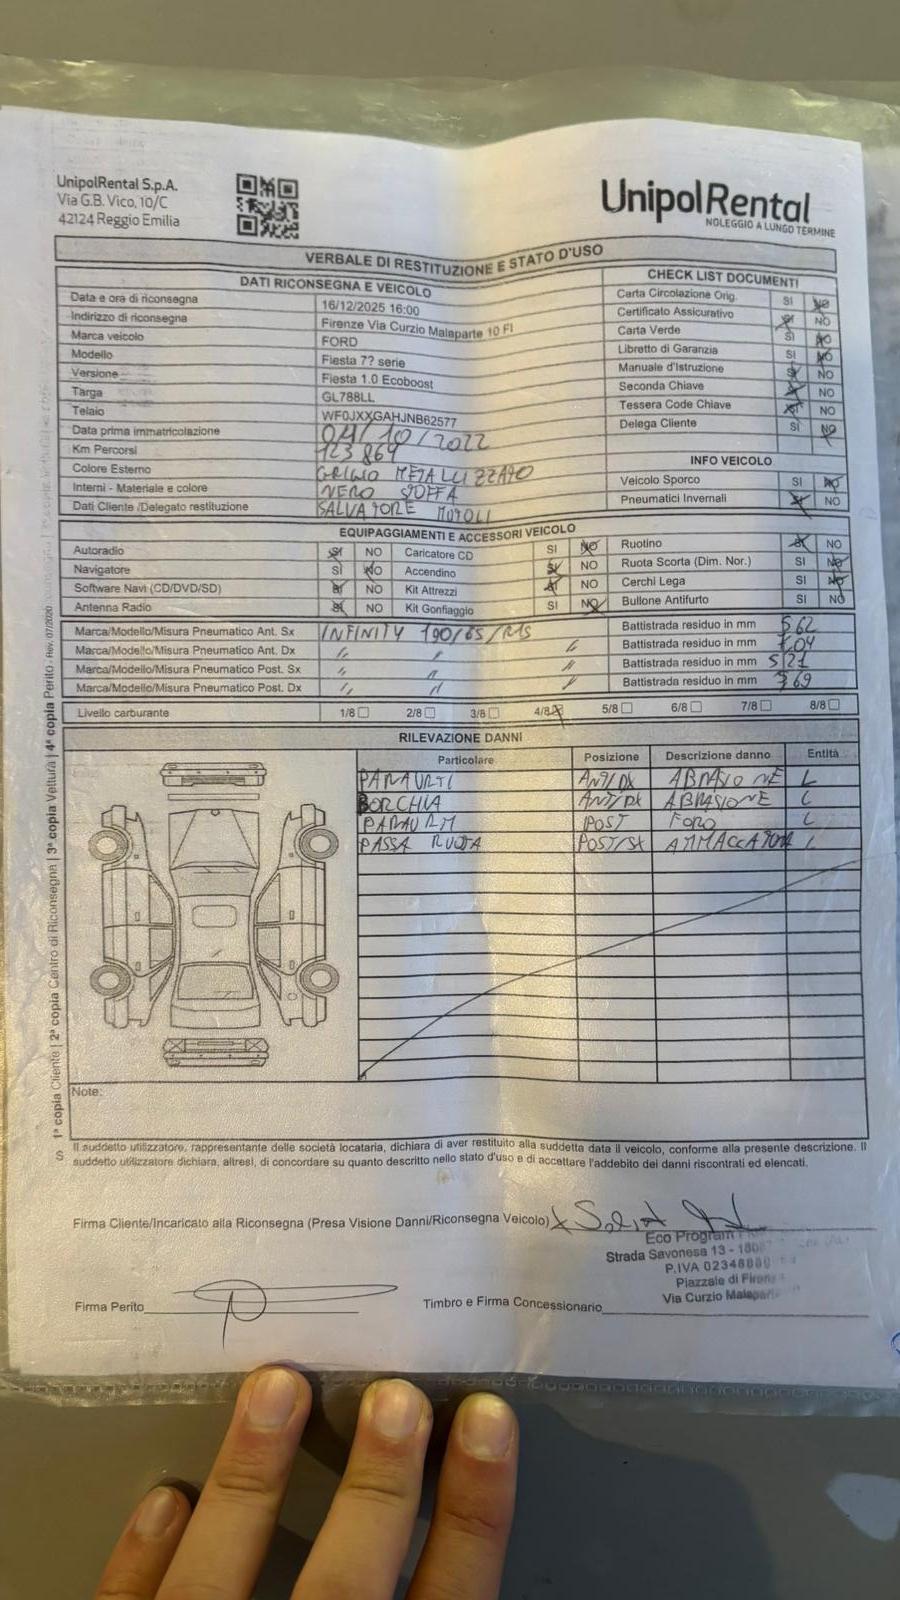 UnipolRental S.p.A.
Via G.B. Vico, 10/C
42124 Reggio Emilia
UnipolRental
NOLEGGIO A LUNGO TERMINE
VERBALE DI RESTITUZIONE E STATO D'USO
DATI RICONSEGNA E VEICOLO
Data e ora di riconsegna 16/12/2025 16:00
Indirizzo di riconsegna Firenze Via Curzio Malaparte 10 FI
Marca veicolo FORD
Modello Fiesta 7?? serie
Versione Fiesta 1.0 Ecoboost
Targa GL788LL
Telaio WF0JXXGAHJNB62577
Data prima immatricolazione 04/10/2022
Km Percorsi 123 869
Colore Esterno GRIGIO METALLIZZATO
Interni - Materiale e colore NERO STOFFA
Dati Cliente /Delegato restituzione SALVATORE
CHECK LIST DOCUMENTI
Carta Circolazione Orig. SI NO
Certificato Assicurativo SI NO
Carta Verde SI NO
Libretto di Garanzia SI NO
Manuale d'Istruzione SI NO
Seconda Chiave SI NO
Tessera Code Chiave SI NO
Delega Cliente SI NO
INFO VEICOLO
Veicolo Sporco SI NO
Pneumatici Invernali SI NO
EQUIPAGGIAMENTI E ACCESSORI VEICOLO
Autoradio SI NO Caricatore CD SI NO Ruotino SI NO
Navigatore SI NO Accendino SI NO Ruota Scorta (Dim. Nor.) SI NO
Software Navi (CD/DVD/SD) SI NO Kit Attrezzi SI NO Cerchi Lega SI NO
Antenna Radio SI NO Kit Gonfiaggio SI NO Bullone Antifurto SI NO
Marca/Modello/Misura Pneumatico Ant. Sx INFINITY 190/65/R15 Battistrada residuo in mm 5,62
Marca/Modello/Misura Pneumatico Ant. Dx // // // Battistrada residuo in mm
Marca/Modello/Misura Pneumatico Post. Sx // // // Battistrada residuo in mm 5,21
Marca/Modello/Misura Pneumatico Post. Dx // // // Battistrada residuo in mm
Livello carburante 1/8 2/8 3/8 4/8 5/8 6/8 7/8 8/8
RILEVAZIONE DANNI
Particolare Posizione Descrizione danno Entità
PARAURTI ANT/DX ABRASIONE L
BORCHIA ANT/DX ABRASIONE L
PARAURTI POST FORO L
PASSA RUOTA POST/SX AMMACCATURA L
Note:
Il suddetto utilizzatore, rappresentante delle società locataria, dichiara di aver restituito alla suddetta data il veicolo, conforme alla presente descrizione. Il
suddetto utilizzatore dichiara, altresì, di concordare su quanto descritto nello stato d'uso e di accettare l'addebito dei danni riscontrati ed elencati.
S
Firma Cliente/Incaricato alla Riconsegna (Presa Visione Danni/Riconsegna Veicolo)
Eco Program
Strada Savonesa 13 -
P.IVA
Piazzale di
Via Curzio
Firma Perito
Timbro e Firma Concessionario
1ª copia Cliente | 2ª copia Centro di Riconsegna | 3ª copia Vettura | 4ª copia Perito - Rev. 07/2020